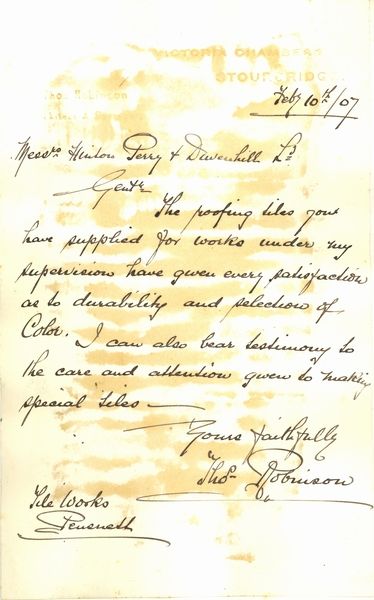 VICTORIA CHAMBERS
STOURBRIDGE
Thos Robinson
Feby 10th/07
Messrs Hinton Perry & Davenhill Ld
Gents
The roofing tiles you
have supplied for works under my
supervision have given every satisfaction
as to durability and selection of
Color. I can also bear testimony to
the care and attention given to making
special tiles —
Yours faithfully
"Thos Robinson"
Tile Works
Pensnett